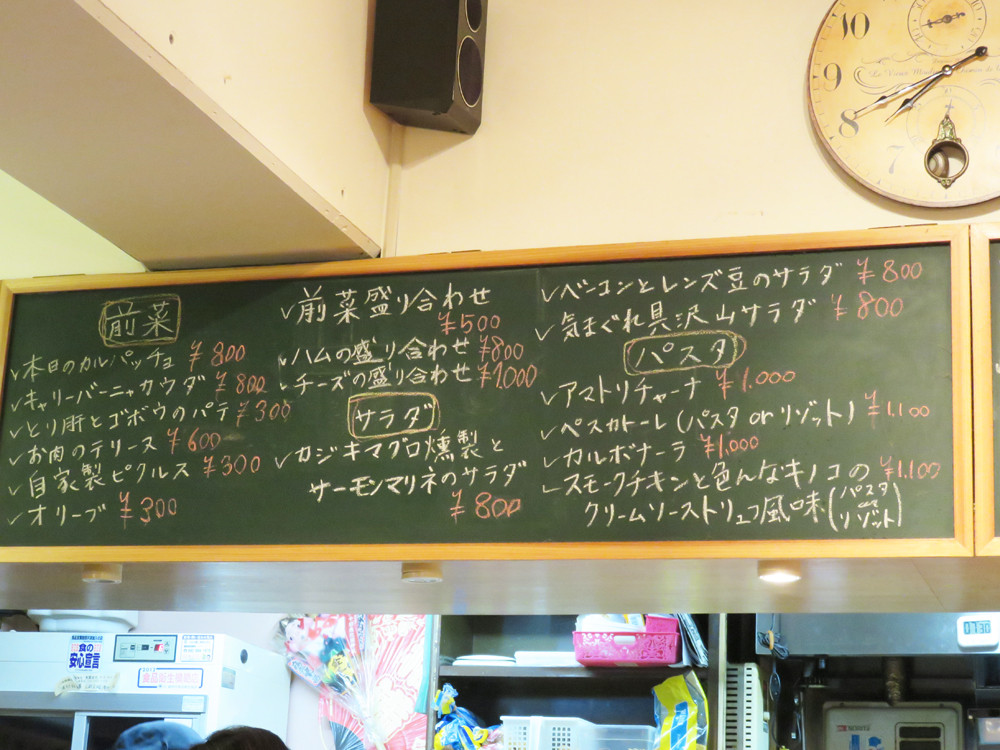 前菜
✓本日のカルパッチョ ¥800
✓キャリーバーニャカウダ ¥800
✓とり肝とゴボウのパテ ¥300
✓お肉のテリーヌ ¥600
✓自家製ピクルス ¥300
✓オリーブ ¥300
✓前菜盛り合わせ
¥500
✓ハムの盛り合わせ ¥800
✓チーズの盛り合わせ ¥1.000
サラダ
✓カジキマグロ燻製と
サーモンマリネのサラダ
¥800
✓ベーコンとレンズ豆のサラダ ¥800
✓気まぐれ具沢山サラダ ¥800
パスタ
✓アマトリチャーナ ¥1.000
✓ペスカトーレ(パスタ or リゾット) ¥1.100
✓カルボナーラ ¥1,000
✓スモークチキンと色んなキノコの ¥1.100
クリームソーストリュフ風味(パスタ
or
リゾット)
10
9
8
7
食の
安心宣言
0730